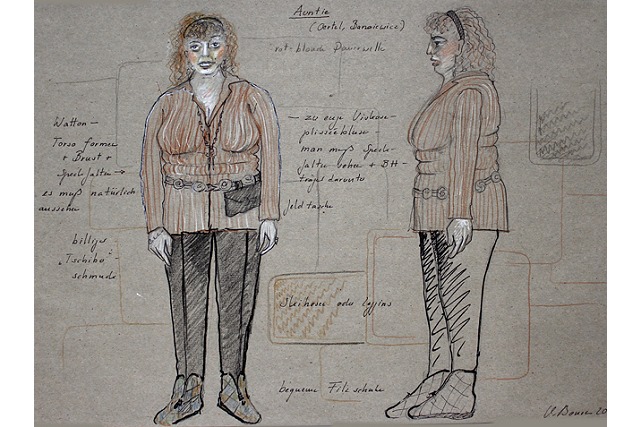 Auntie
(Oertel,
rot-blonde Dauerwelle
Watton-
Torso formen
+ Brust +
Speckfalten →
es muß natürlich
aussehen
billiger
"Tschibo"-
schmuck
- zu enge Viskose-
plisséebluse
man muß Speck-
falten sehen + BH-
träger darunter
Geldtasche
Steghosen oder leggins
bequeme Filzschuhe